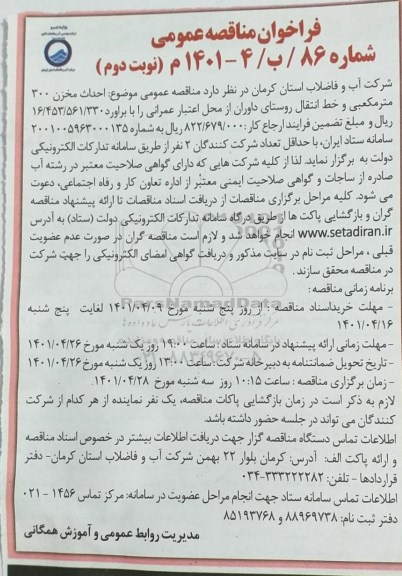 فراخوان مناقصه عمومی
شماره ۸۶ / ب / ۴ -۱۴۰۱ م (نوبت دوم)
شرکت آب و فاضلاب استان کرمان در نظر دارد مناقصه عمومی موضوع: احداث مخزن ۳۰۰
مترمکعبی و خط انتقال روستای داوران از محل اعتبار عمرانی را با براورد ۱۶/۴۵۳/۵۶۱/۳۳۰
ریال و مبلغ تضمین فرایند ارجاع کار: ۸۲۲/۶۷۹/۰۰۰ ریال به شماره ۲۰۰۱۰۰۵۹۶۳۰۰۰۱۳۵
سامانه ستاد ایران، با حداقل تعداد شرکت کنندگان ۲ نفر از طریق سامانه تدارکات الکترونیکی
دولت به برگزار نماید. لذا از کلیه شرکت هایی که دارای گواهی صلاحیت معتبر در رشته آب
صادره از ساجات و گواهی صلاحیت ایمنی معتبر از اداره تعاون کار و رفاه اجتماعی، دعوت
می شود. کلیه مراحل برگزاری مناقصات از دریافت اسناد مناقصات تا ارائه پیشنهاد مناقصه
گران و بازگشایی پاکت ها از طریق درگاه سامانه تدارکات الکترونیکی دولت (ستاد) به آدرس
www.setadiran.ir انجام خواهد شد و لازم است مناقصه گران در صورت عدم عضویت
قبلی ، مراحل ثبت نام در سایت مذکور و دریافت گواهی امضای الکترونیکی را جهت شرکت
در مناقصه محقق سازند.
برنامه زمانی مناقصه:
- مهلت خرید اسناد مناقصه : از روز پنج شنبه مورخ ۱۴۰۱/۰۴/۰۹ لغایت پنج شنبه
۱۴۰۱/۰۴/۱۶
- مهلت زمانی ارائه پیشنهاد در سامانه ستاد: ساعت ۱۹:۰۰ روز یک شنبه مورخ ۱۴۰۱/۰۴/۲۶
- تاریخ تحویل ضمانتنامه به دبیرخانه شرکت: ساعت ۱۳:۰۰ روز یک شنبه مورخ ۱۴۰۱/۰۴/۲۶
- زمان برگزاری مناقصه : ساعت ۱۰:۱۵ روز سه شنبه مورخ ۱۴۰۱/۰۴/۲۸
لازم به ذکر است در زمان بازگشایی پاکات مناقصه، یک نفر نماینده از هر کدام از شرکت
کنندگان می تواند در جلسه حضور داشته باشد.
اطلاعات تماس دستگاه مناقصه گزار جهت دریافت اطلاعات بیشتر در خصوص اسناد مناقصه
و ارائه پاکت الف: آدرس: کرمان بلوار ۲۲ بهمن شرکت آب و فاضلاب استان کرمان- دفتر
قراردادها - تلفن: ۳۳۳۲۲۲۲۸۲-۰۳۴
اطلاعات تماس سامانه ستاد جهت انجام مراحل عضویت در سامانه: مرکز تماس ۱۴۵۶ - ۰۲۱
دفتر ثبت نام: ۸۸۹۶۹۷۳۸ و ۸۵۱۹۳۷۶۸
مدیریت روابط عمومی و آموزش همگانی